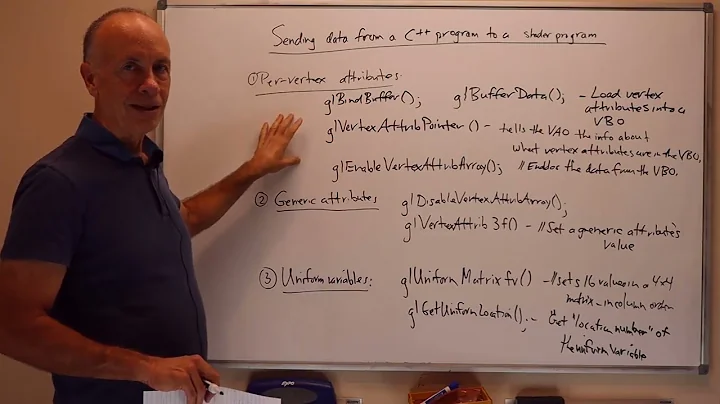 Sending data from a C++ program to a shader program
① Per-vertex attributes.
glBindBuffer(); glBufferData(); - Load vertex
attributes into a
VBO
glVertexAttribPointer() - tells the VAO the info about
what vertex attributes are in the VBO,
glEnableVertexAttribArray(); // Enables the data from the VBO.
② Generic attributes glDisableVertexAttribArray();
glVertexAttrib3f() - // Set a generic attribute's
value
③ Uniform variables: glUniformMatrixfv() - // sets 16 values in a 4x4
matrix - in column order
glGetUniformLocation(); - Get "location number" of
the uniform variable
EXPO